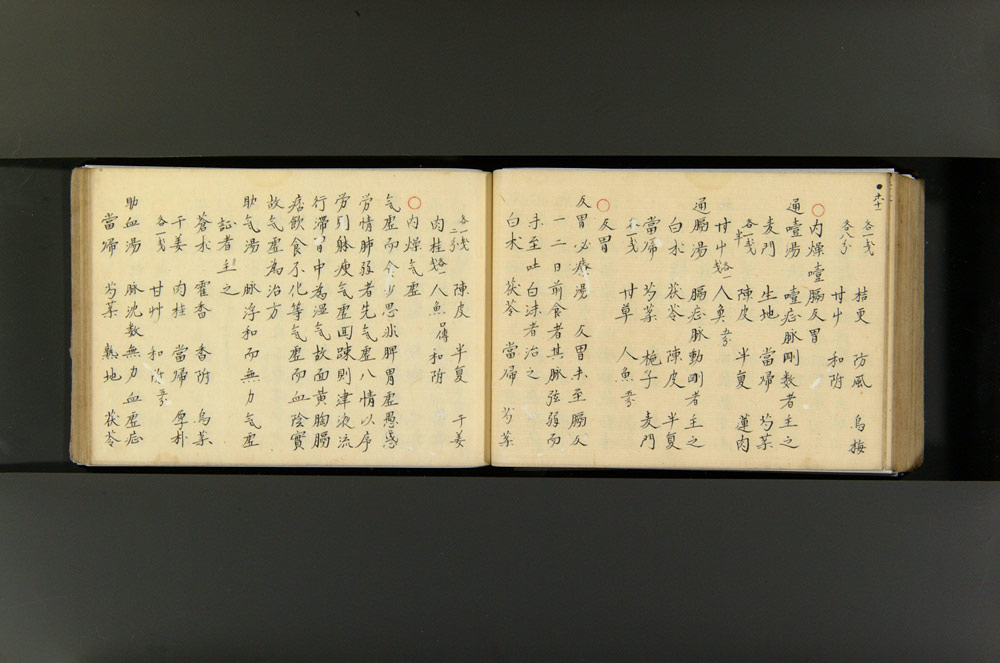 各一戔 桔更 防風 烏梅
各八分 甘艸 和附
○内燥噎膈反胃
通噎湯 噎症脉剛数者主之
麦門 生地 當帰 芍薬
各一戔半 陳皮 半夏 蓮肉
甘艸各一戔 人奐
通膈湯 膈症脉動剛者主之
白朮 茯苓 陳皮 半夏
當帰 芍薬 梔子 麦門
各一戔 甘草 人魚
○反胃
反胃必療湯 反胃未至膈反
一二日前食者其脉弦弱而
未至吐白沫者治之
白朮 茯苓 當帰 芍薬
各一戔二分 陳皮 半夏 干姜
肉桂各一戔 人魚 和附
○内燥气虚
气虚而食少思此脾胃虚愚惑
労情肺弱者先气虚八情以序
労引躰痩气虚回踈則津液流
行滞胃中為湿气故面黄胸膈
痞飲食不化等气虚而血陰實
故气虚為治方
助气湯 脉浮和而無力气虚
証者主之
蒼朮 霍香 香附 烏薬
干姜 肉桂 當帰 厚朴
各一戔 甘艸 和附
助血湯 脉沈数無力血虚症
當帰 芍薬 熟地 茯苓